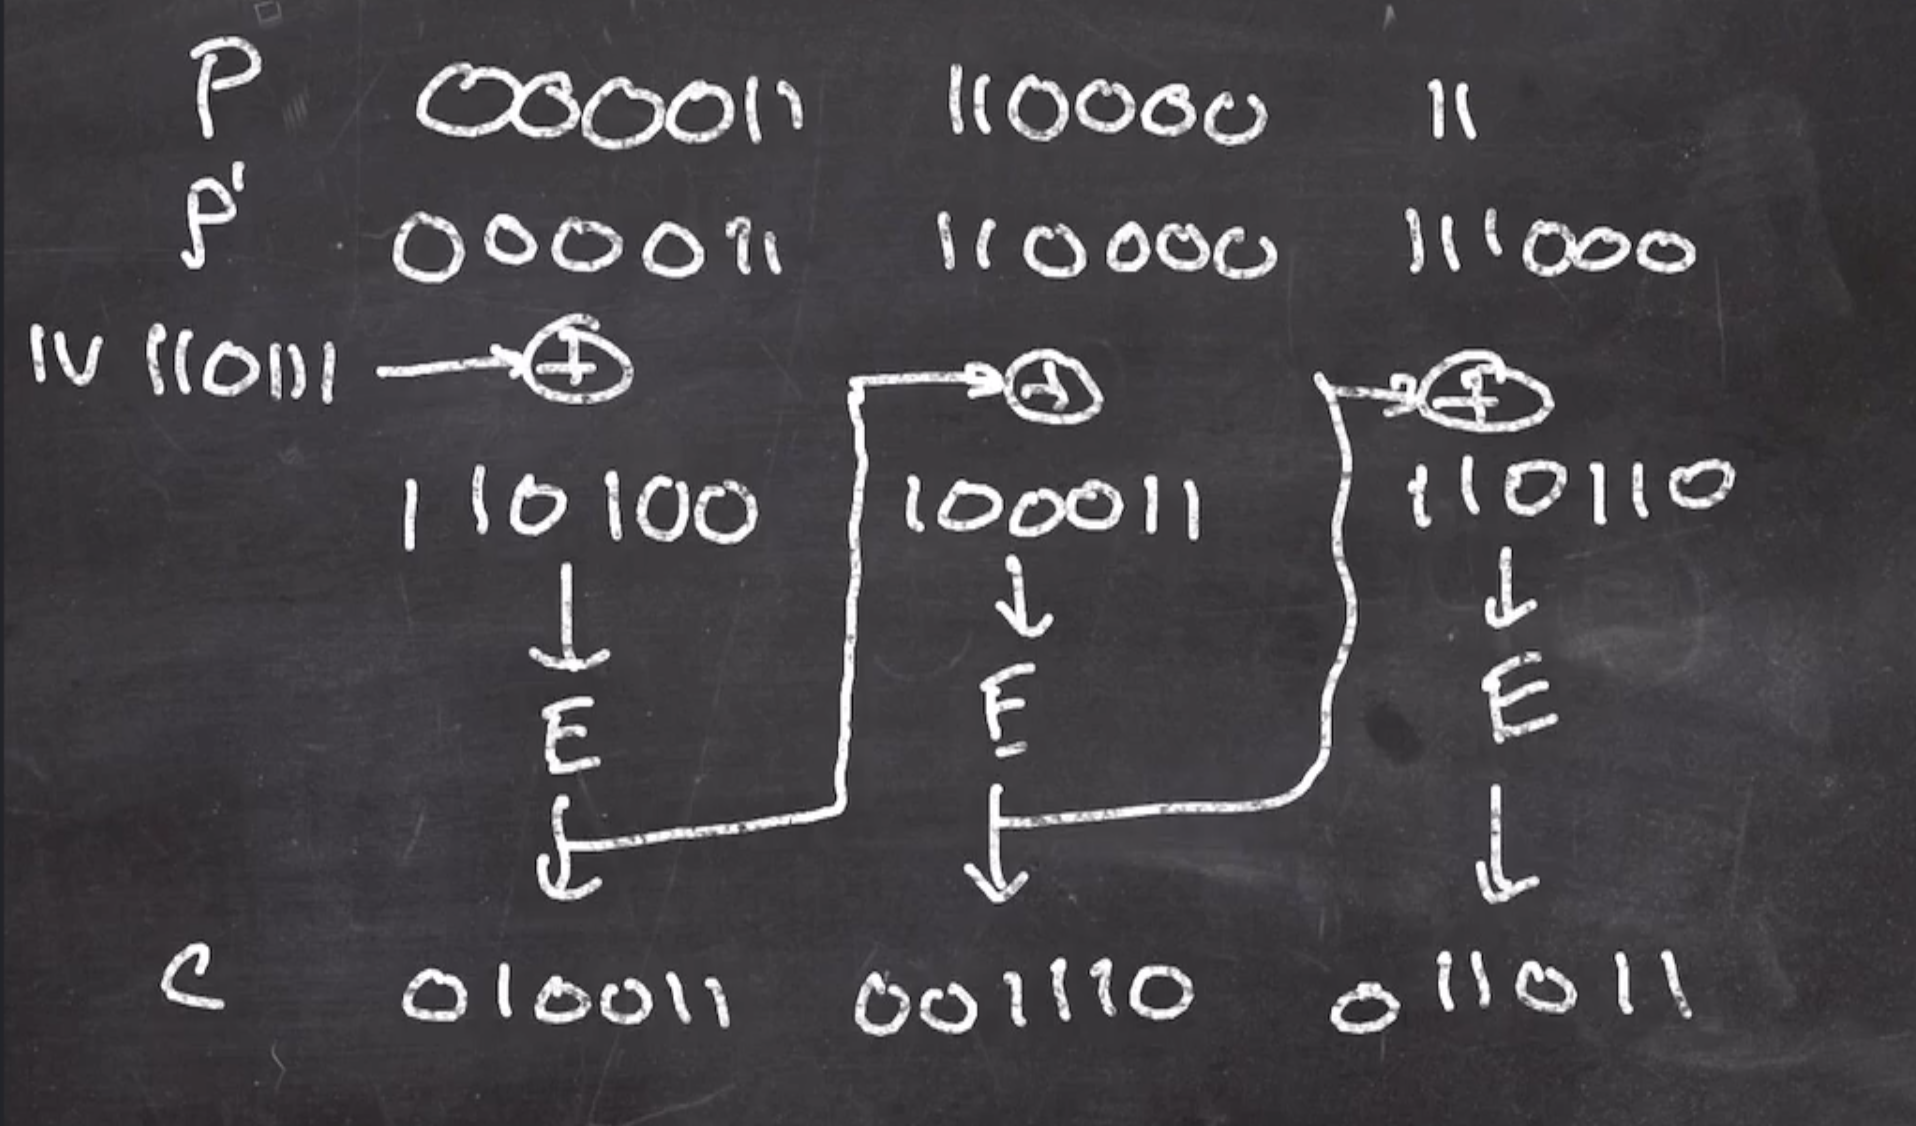 P 000011 110000 11
P' 000011 110000 111000
IV 110111 → ⊕ ⊕ ⊕
110100 100011 110110
E E E
C 010011 001110 011011